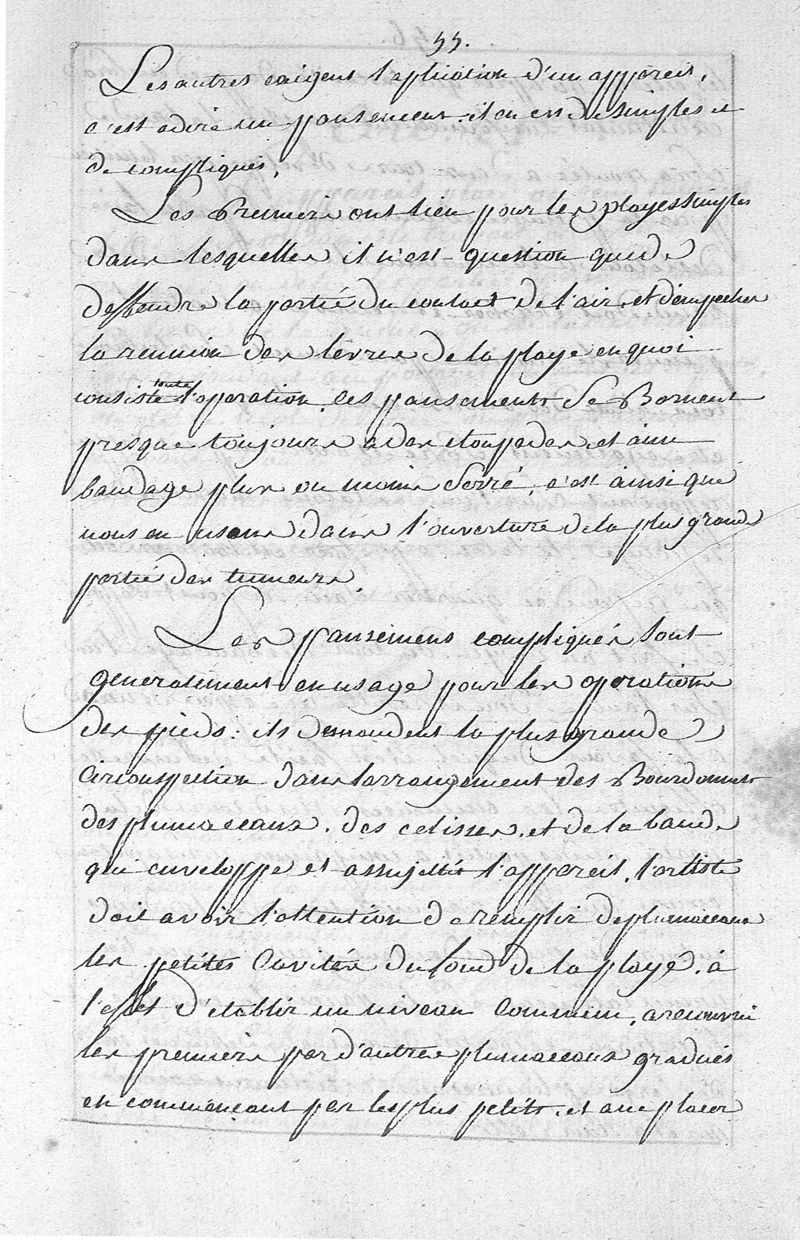 55.
Les autres exigent l'aplication d'un appareil,
c'est adire un pansement. il en est de simples et
de compliqués.
Les Premiers ont lieu pour les playes simples
dans lesquelles il n'est question que de
deffendre la partie du contact de l'air, et d'empecher
la reunion des levres de la playe en quoi
consiste toute l'operation, les pansements se Bornent
presque toujours a des etoupades et a un
bandage plus ou moins serré, c'est ainsi que
nous en usons dans l'ouverture de la plus grande
partie des tumeurs.
Les pansemens compliqués sont
generalement en usage pour les operations
des pieds : ils demandent la plus grande
Circonspection dans larrangement des Bourdonnets
des plumaceaux, des eclisses, et de la bande
qui enveloppe et assujettit l'appareil, l'artiste
doit avoir l'attention de remplir de plumaceaux
les petites Cavités du fond de la playe, à
l'effet d'etablir un niveau Commun, a recouvrir
les premiers par d'autres plumaceaux gradués
en commencant par les plus petits, et a ne placer